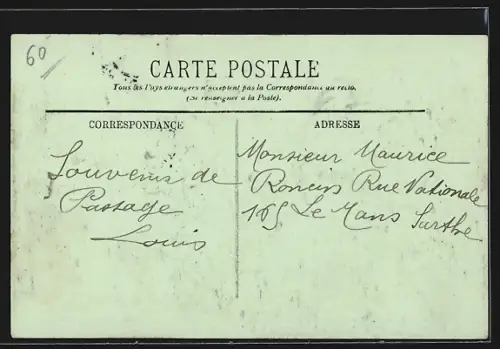 60
CARTE POSTALE
Tous les Pays étrangers n'acceptent pas la Correspondance au recto.
(Se renseigner à la Poste).
CORRESPONDANCE
Souvenirs de
Passage
Louis
ADRESSE
Monsieur Maurice
Roncin Rue Nationale
165 Le Mans Sarthe